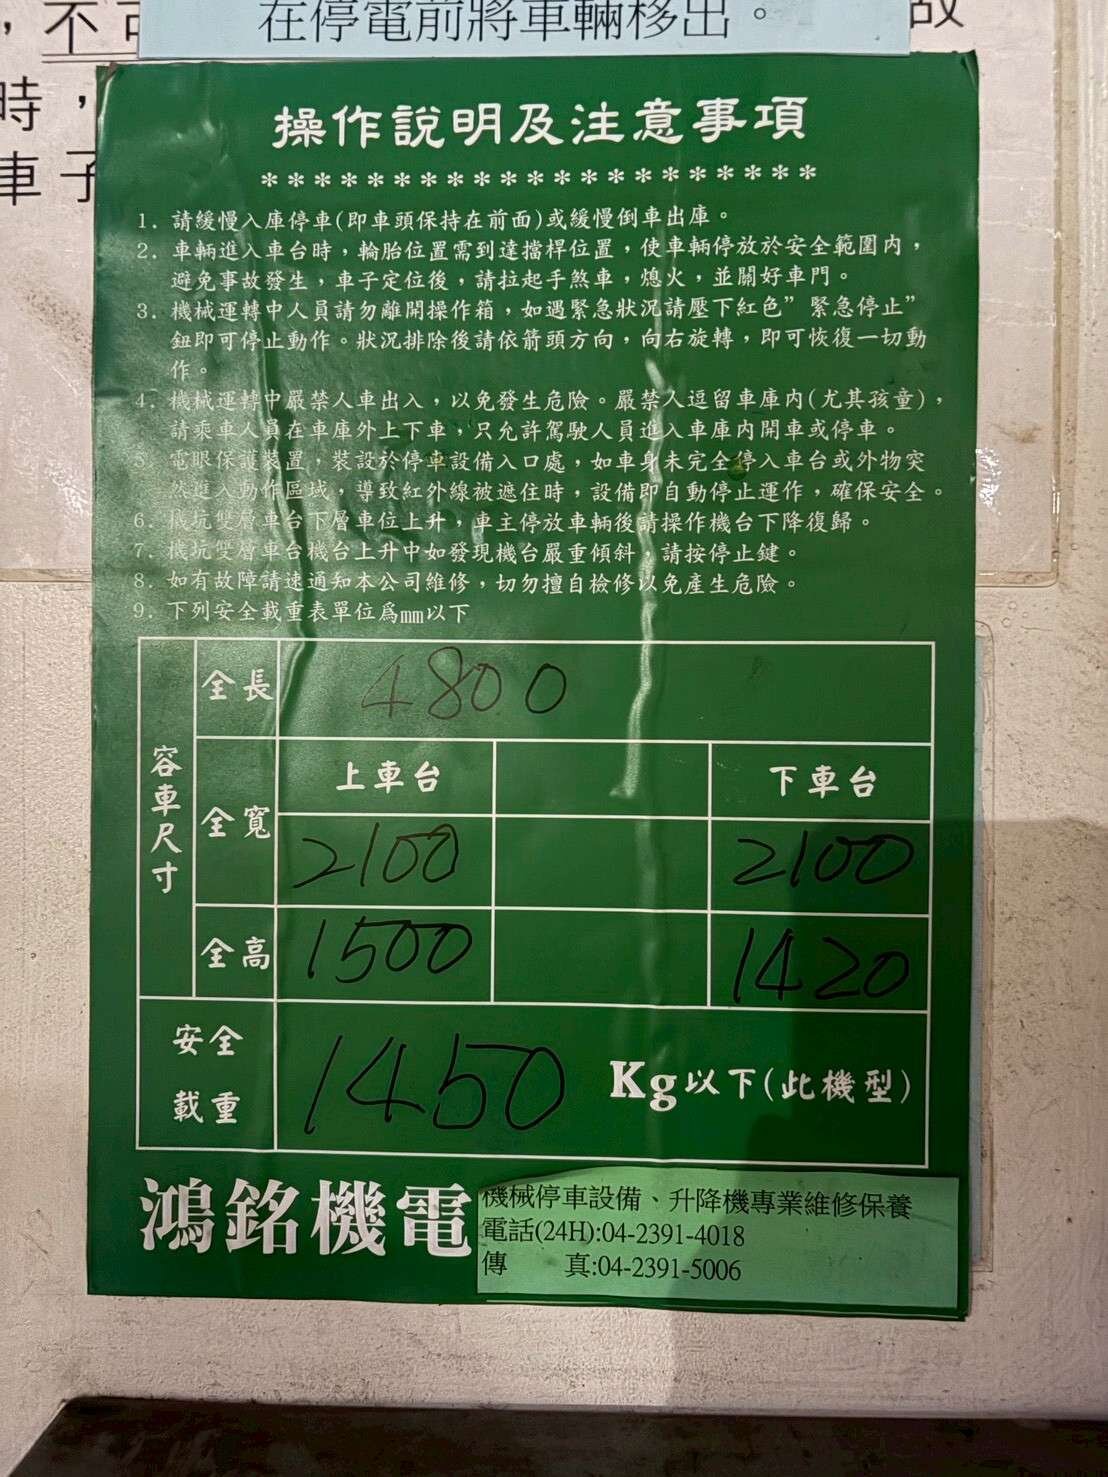 ，不可
在停電前將車輛移出。
故
時，
車子
操作說明及注意事項
*********************
1. 請緩慢入庫停車(即車頭保持在前面)或緩慢倒車出庫。
2. 車輛進入車台時，輪胎位置需到達擋桿位置，使車輛停放於安全範圍內，
避免事故發生，車子定位後，請拉起手煞車，熄火，並關好車門。
3. 機械運轉中人員請勿離開操作箱，如遇緊急狀況請壓下紅色”緊急停止”
鈕即可停止動作。狀況排除後請依箭頭方向，向右旋轉，即可恢復一切動
作。
4. 機械運轉中嚴禁人車出入，以免發生危險。嚴禁人逗留車庫內(尤其孩童)，
請乘車人員在車庫外上下車，只允許駕駛人員進入車庫內開車或停車。
5. 電眼保護裝置，裝設於停車設備入口處，如車身未完全停入車台或外物突
然進入動作區域，導致紅外線被遮住時，設備即自動停止運作，確保安全。
6. 機坑雙層車台下層車位上升，車主停放車輛後請操作機台下降復歸。
7. 機坑雙層車台機台上升中如發現機台嚴重傾斜，請按停止鍵。
8. 如有故障請速通知本公司維修，切勿擅自檢修以免產生危險。
9. 下列安全載重表單位為mm以下
容車尺寸
全長 4800
全寬 上車台 下車台
2100 2100
全高 1500 1420
安全
載重
1450 Kg以下(此機型)
鴻銘機電
機械停車設備、升降機專業維修保養
電話(24H):04-2391-4018
傳 真:04-2391-5006